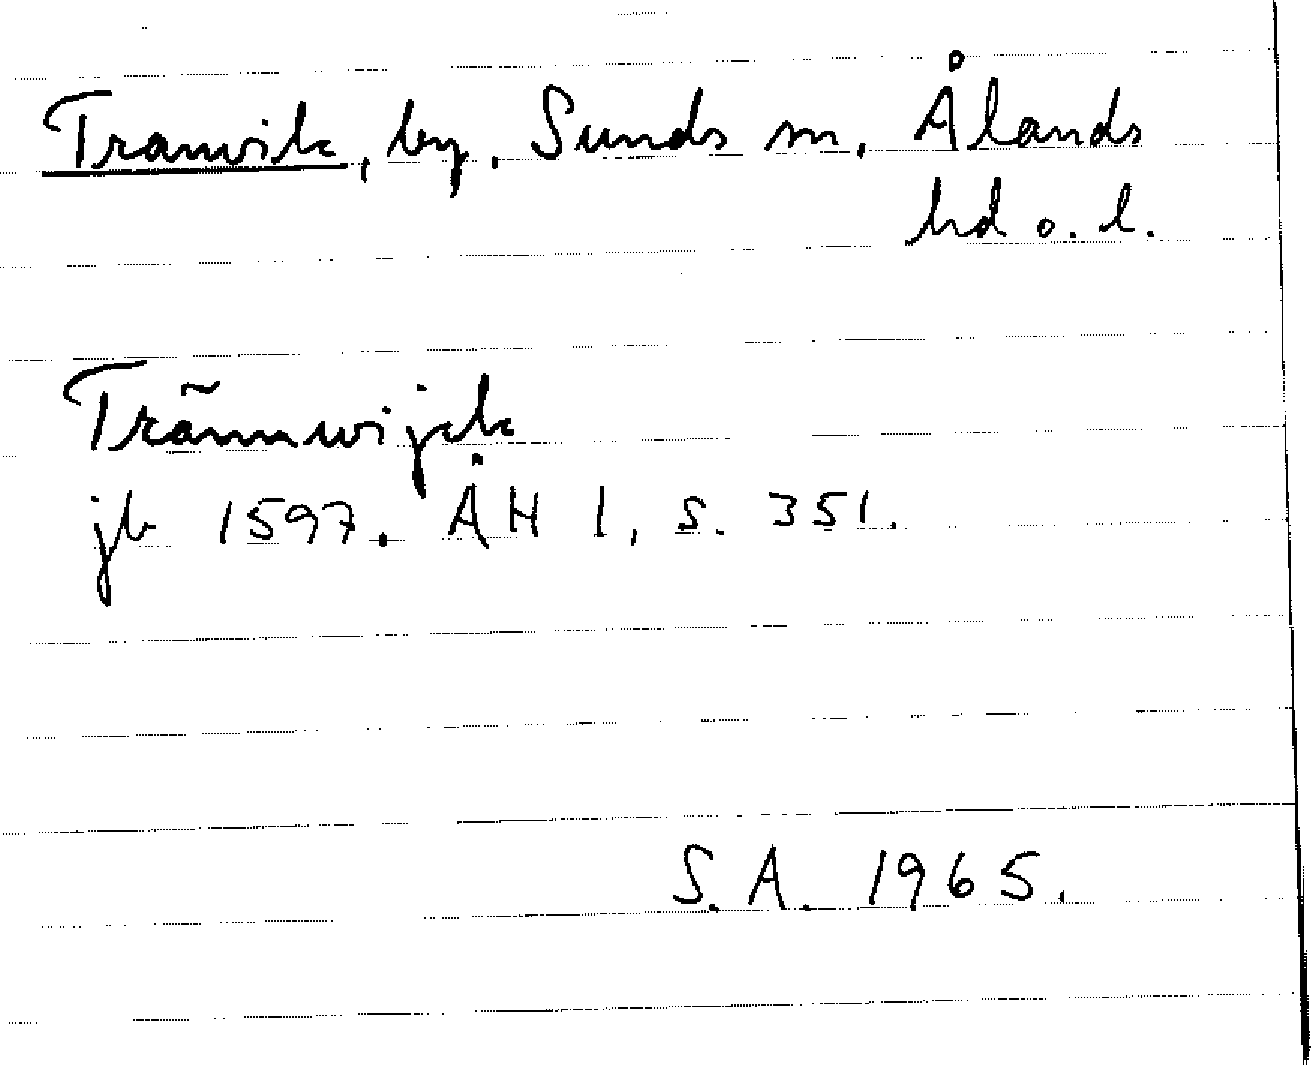 Tranvik, by, Sunds sn, Ålands
hd o. l.
Trãnnwijck
jb 1597. ÅH 1, s. 351.
S.A. 1965.